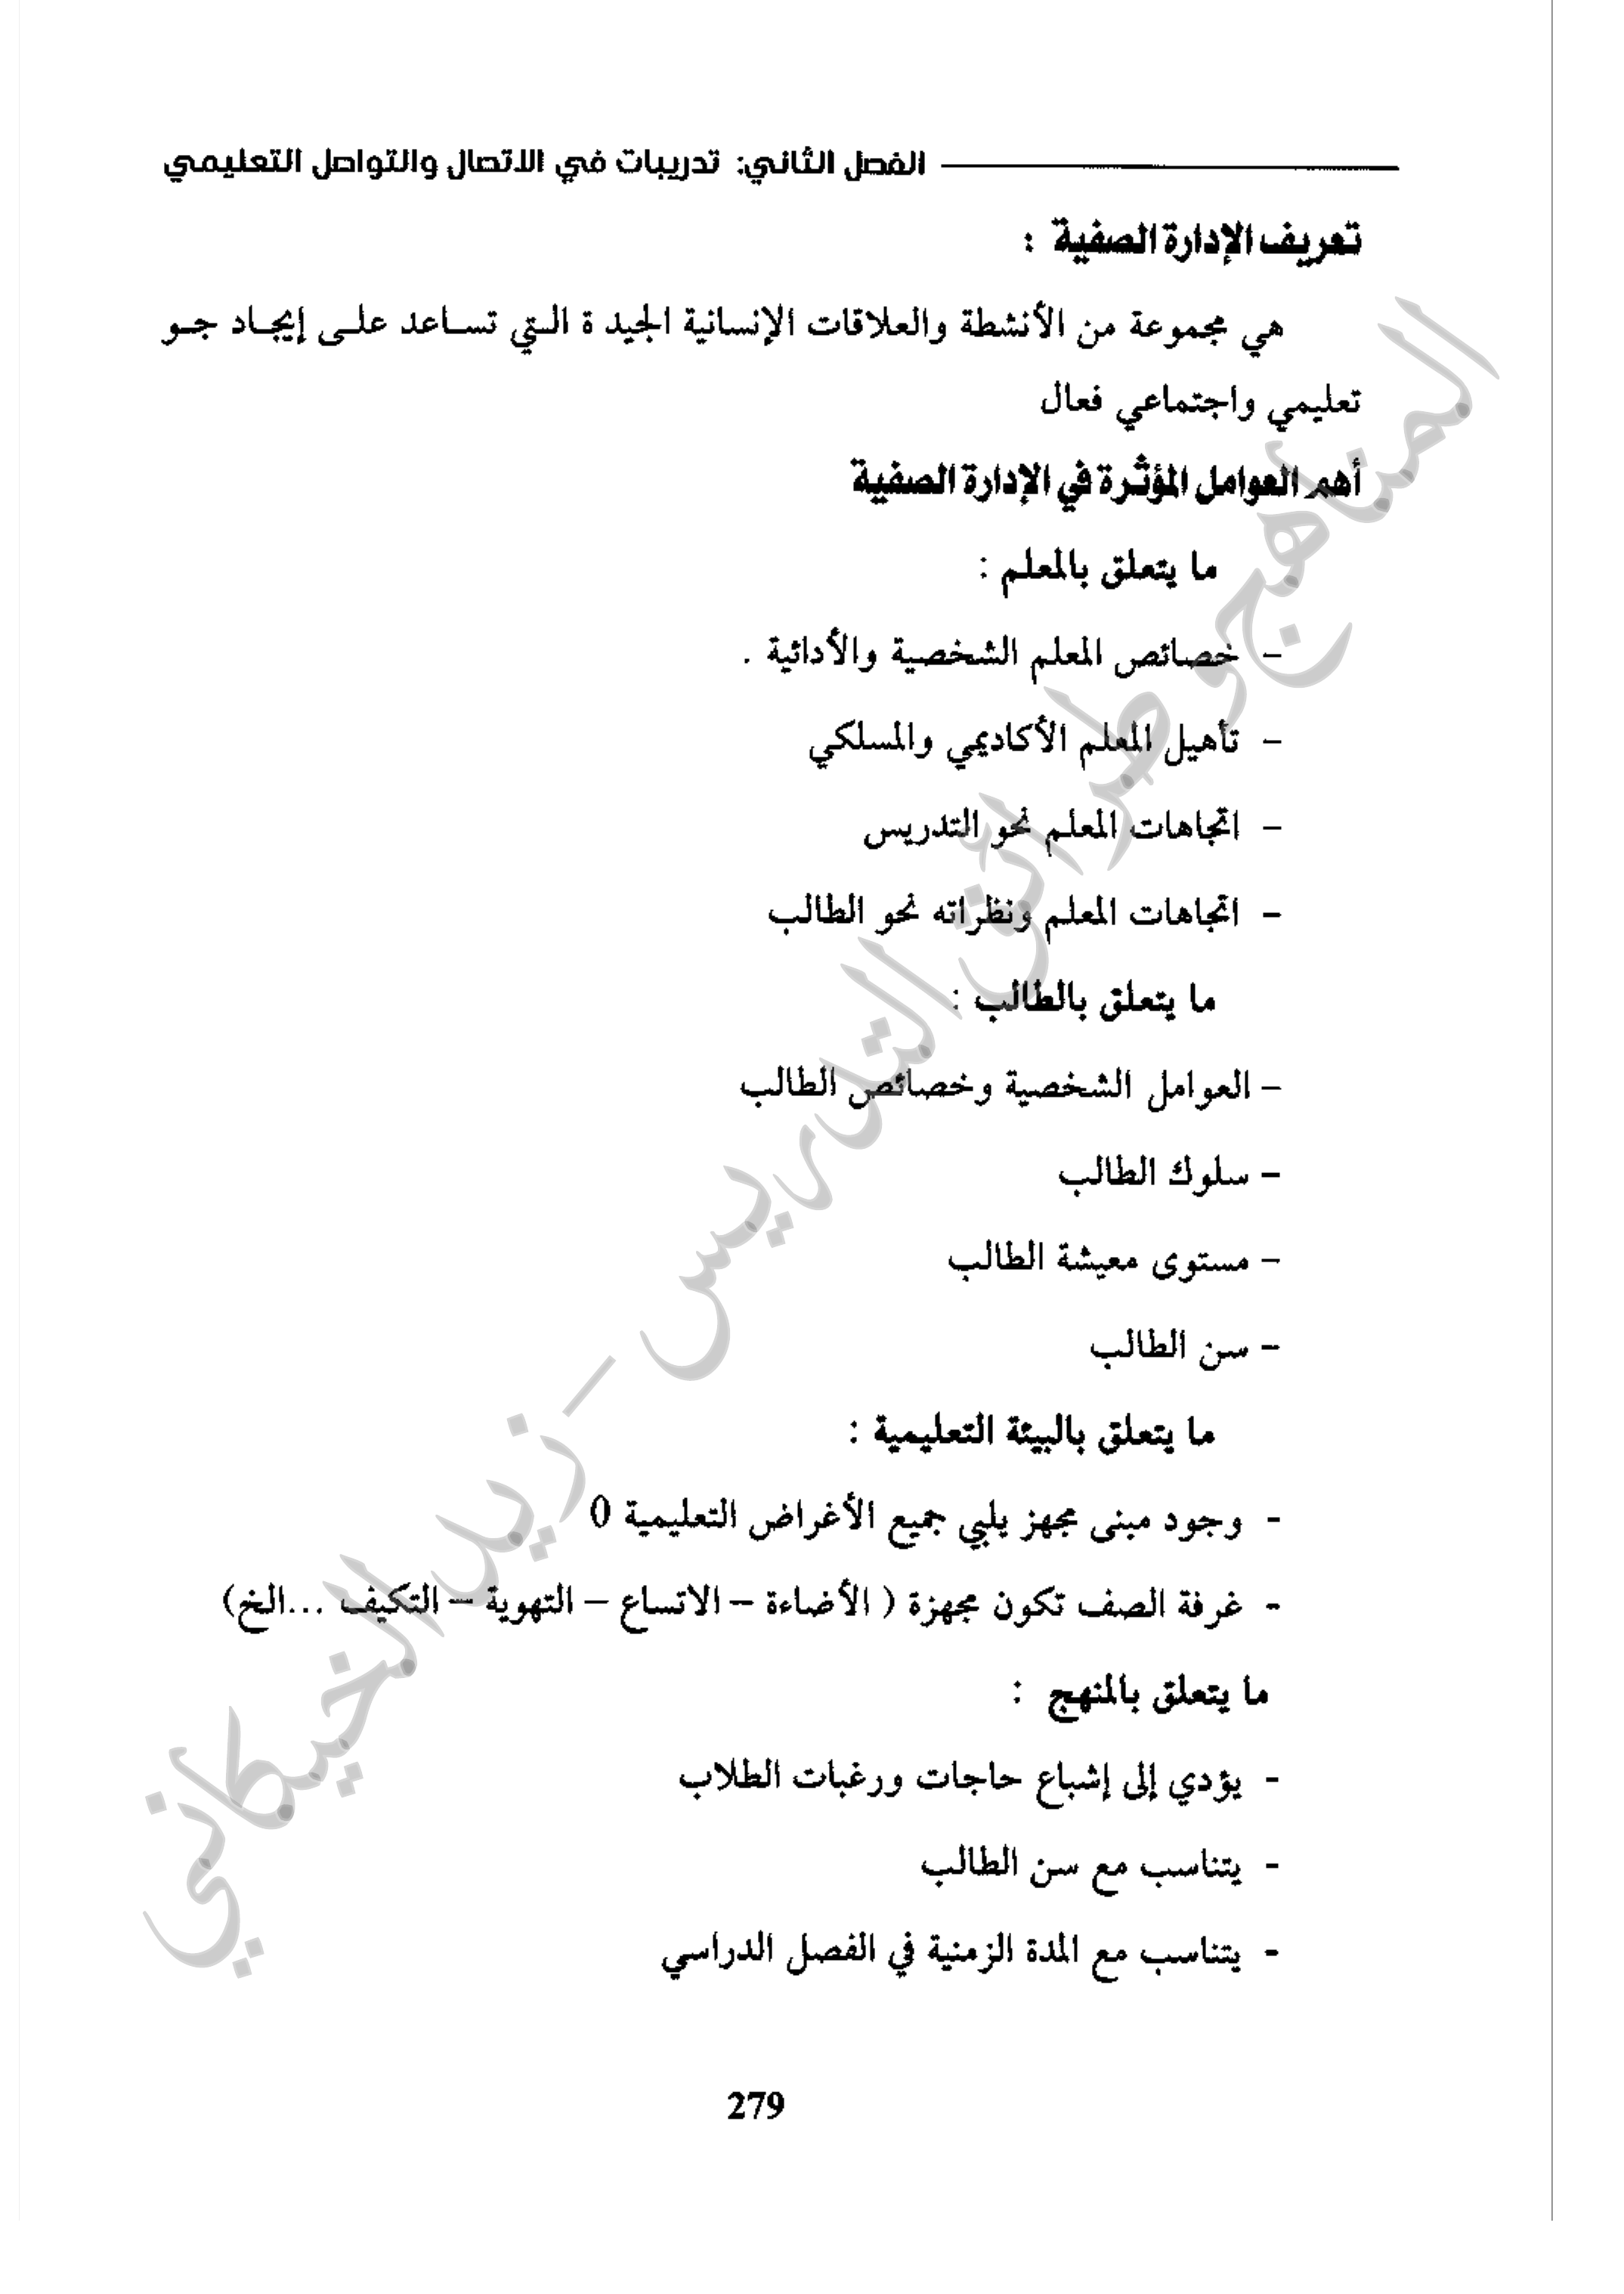 الفصل الثاني: تدريبات في الاتصال والتواصل التعليمي
تعريف الإدارة الصفية :
هي مجموعة من الأنشطة والعلاقات الإنسانية الجيد ة التي تساعد على إيجاد جو
تعليمي واجتماعي فعال
أهم العوامل المؤثرة في الإدارة الصفية
ما يتعلق بالمعلم :
- خصائص المعلم الشخصية والأدائية .
- تأهيل المعلم الأكاديمي والمسلكي
- اتجاهات المعلم نحو التدريس
- اتجاهات المعلم ونظراته نحو الطالب
ما يتعلق بالطالب :
- العوامل الشخصية وخصائص الطالب
- سلوك الطالب
- مستوى معيشة الطالب
- سن الطالب
ما يتعلق بالبيئة التعليمية :
- وجود مبنى مجهز يلبي جميع الأغراض التعليمية 0
- غرفة الصف تكون مجهزة ( الأضاءة – الاتساع – التهوية – التكيف ...الخ)
ما يتعلق بالمنهج :
- يؤدي إلى إشباع حاجات ورغبات الطلاب
- يتناسب مع سن الطالب
- يتناسب مع المدة الزمنية في الفصل الدراسي
279
المناهج وطرائق التدريس - زيد الخيكاني